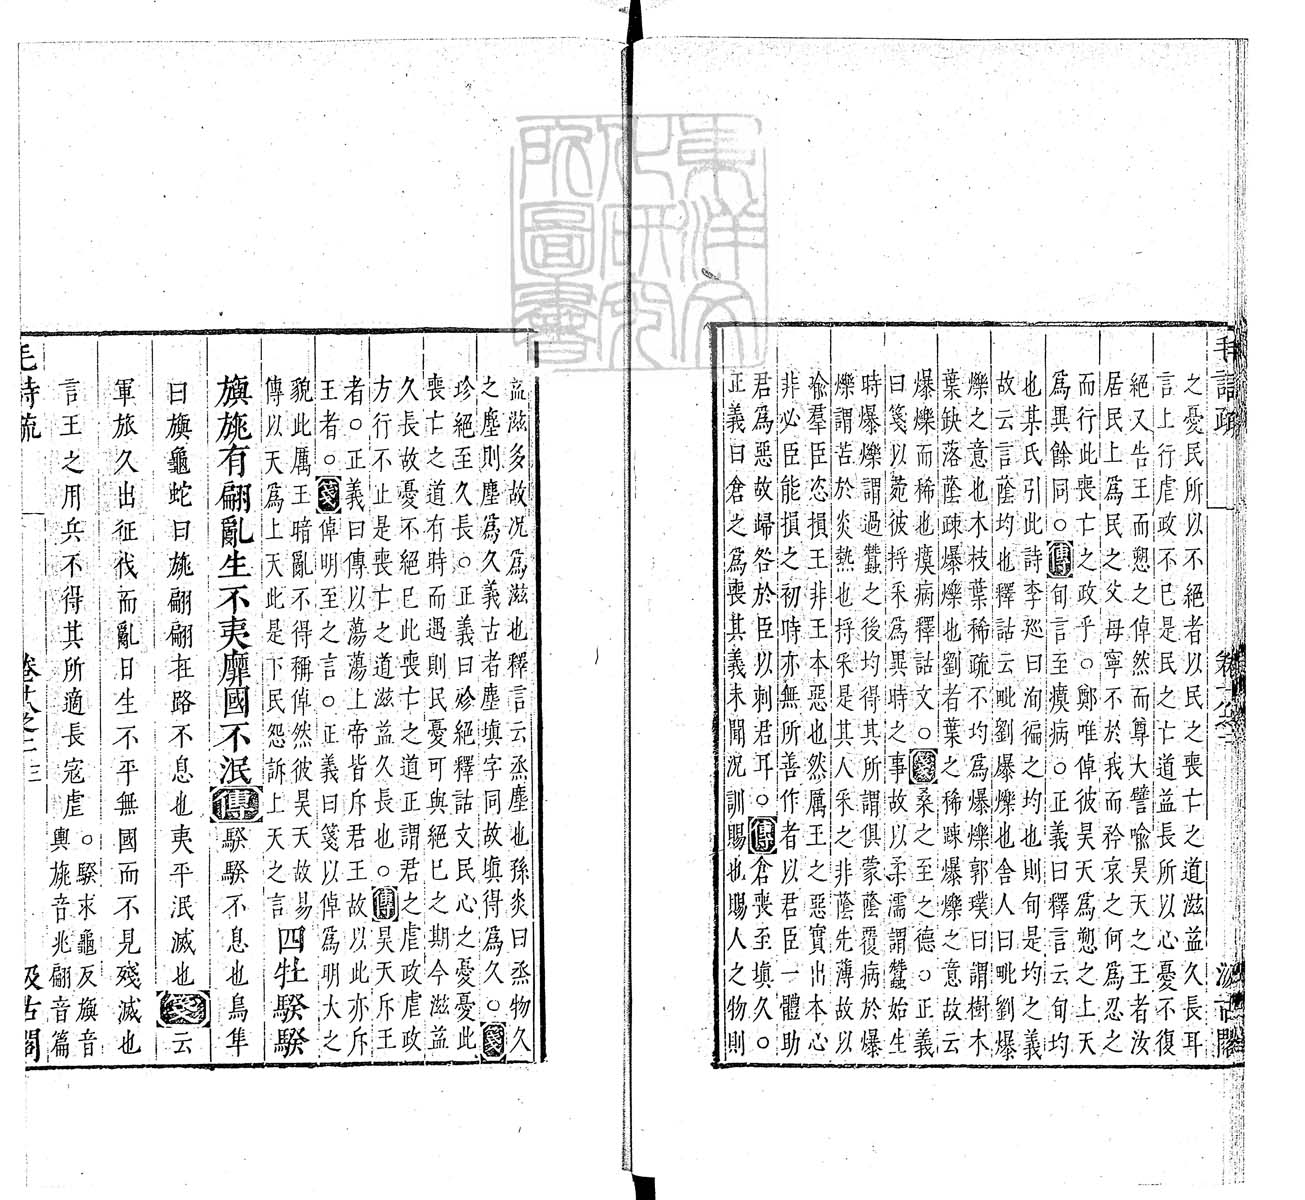 之憂民所以不絕者以民之喪亡之道滋益久長耳
言上行虐政不已是民之亡道益長所以心憂不復
絕又告王而愬之倬然而尊大譬喻昊天之王者汝
居民上爲民之父母寧不於我而矜哀之何爲忍之
而行此喪亡之政乎○鄭唯倬彼昊天爲愬之上天
爲異餘同○傳旬言至瘼病○正義曰釋言云旬均
也某氏引此詩李巡曰洵徧之均也則旬是均之義
故云言蔭均也釋詁云毗劉爆爍也舍人曰毗劉爆
爍之意也木枝葉稀疏不均爲爆爍郭璞曰謂樹木
葉缺落蔭疎爆爍也劉者葉之稀疎爆爍之意故云
爆爍而稀也瘼病釋詁文○箋桑之至之德○正義
曰箋以菀彼捋采爲異時之事故以柔濡謂蠶始生
時爆爍謂過蠶之後均得其所謂俱蒙蔭覆病於爆
爍謂苦於炎熱也捋采是其人采之非蔭先薄故以
喻羣臣恣損王非王本惡也然厲王之惡實出本心
非必臣能損之初時亦無所善作者以君臣一體助
君爲惡故歸咎於臣以刺君耳○傳倉喪至塡久○
正義曰倉之爲喪其義未聞況訓賜也賜人之物則
益滋多故況爲滋也釋言云烝塵也孫炎曰烝物久
之塵則塵爲久義古者塵塡字同故塡得爲久○箋
殄絕至久長○正義曰殄絕釋詁文民心之憂憂此
喪亡之道有時而遇則民憂可與絕巳之期今滋益
久長故憂不絕已此喪亡之道正謂君之虐政虐政
方行不止是喪亡之道滋益久長也○傳昊天斥王
者○正義曰傳以蕩蕩上帝皆斥君王故以此亦斥
王者○箋倬明至之言○正義曰箋以倬爲明大之
貌此厲王暗亂不得稱倬然彼昊天故易
傳以天爲上天此是下民怨訴上天之言
四牡騤騤
旟旐有翩亂生不夷靡國不泯傳騤騤不息也鳥隼
曰旟龜蛇曰旐翩翩在路不息也夷平泯滅也箋云
軍旅久出征伐而亂日生不平無國而不見殘滅也
言王之用兵不得其所適長寇虐○騤求龜反旟音
輿旐音兆翩音篇
毛詩疏
卷十八之二
三
汲古閣